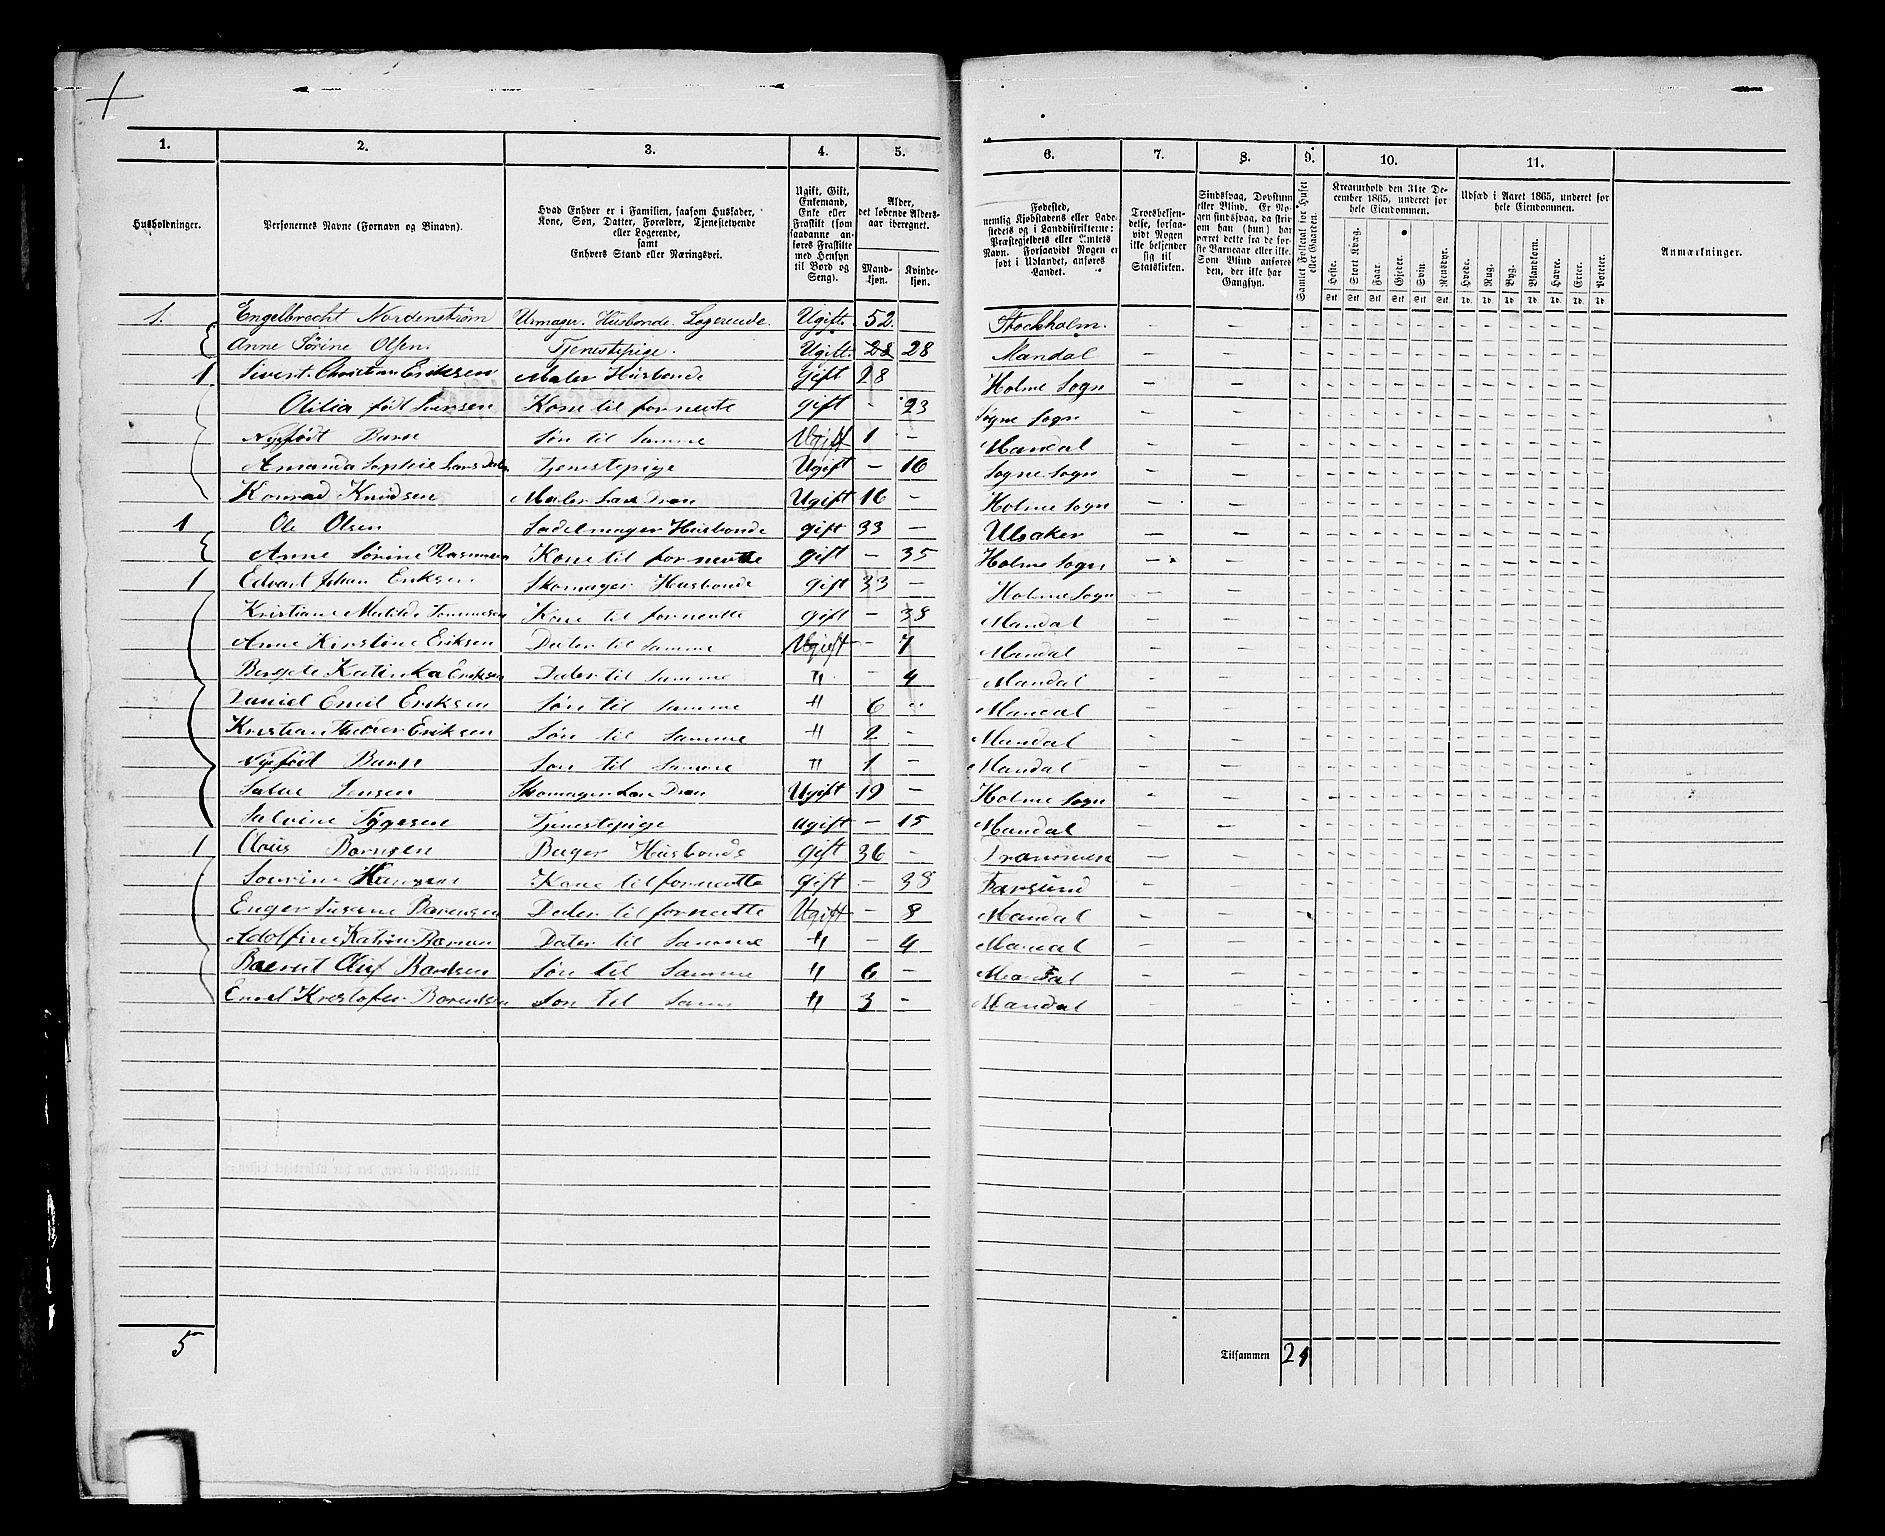 1. 2. 3. 4. 5. 6. 7. 8. 9. 10. 11.
Husholdninger.
Personernes Navne (Fornavn og Binavn).
Hvad Enhver er i Familien, saasom Husfader, Kone, Søn, Datter, Forældre, Tjenestetyende eller Logerende, samt Enhvers Stand eller Næringsvei.
Ugift, Gift, Enkemand, Enke eller Fraskilt (som saadanne anføres Fraskilte med Hensyn til Bord og Seng).
Alder, det løbende Alders-aar iberegnet.
Mandkjøn. Kvindekjøn.
Fødested, nemlig Kjøbstadens eller Ladestedets og i Landdistrikterne: Præstegjeldets eller Amtets Navn. Forsaavidt Nogen er født i Udlandet, anføres Landet.
Troesbekjendelse, forsaavidt Nogen ikke bekjender sig til Statskirken.
Sindssvag, Døvstum eller Blind. Er Nogen sindssvag, da skrives om han (hun) har været dette fra de første Barneaar eller ikke. Som Blind anføres den, der ikke har Gangsyn.
Samlet Folketal for Huset eller Gaarden.
Kreaturhold den 31te December 1865, underet for hele Eiendommen.
Heste. Stort Kvæg. Faar. Gjeder. Svin. Rensdyr.
Udsæd i Aaret 1865, underet for hele Eiendommen.
Hvede. Rug. Byg. Blandkorn. Havre. Erter. Poteter.
Anmærkninger.
1. Engelbrecht Nordenstrøm Urmager. Husbonde. Logerende. Ugift. 52. Stockholm. – –
Anne Sørine Olsen. Tjenestepige. Ugift. 28 28 Mandal – –
1 Sivert Christian Eriksen Maler Husbonde gift 28 Holme Sogn – –
Olilia født Iversen Kone til fornevte gift – 23 Søgne Sogn – –
Nyfødt Barn Søn til Samme Ugift 1 – Mandal – –
Amanda Sophie Lars Dater Tjenestepige Ugift – 16 Søgne Sogn – –
Konrad Knudsen Maler Lære Dren Ugift 16 – Holme Sogn – –
1 Ole Olsen Sadelmager Husbonde gift 33 – Ulsaker – –
Anne Sørine Rasmusen Kone til fornevtte gift – 35 Holme Sogn – –
1 Edvart Johan Eriksen Skomager Husbonde gift 33 – Holme Sogn – –
Kristiane Matilde Kone til fornevtte gift – 38 Mandal – –
Anne Kirstine Eriksen Dater til Samme Ugift – 7 Mandal – –
Bergete Katinka Eriksen Dater til Samme " – 4 Mandal – –
Daniel Emil Eriksen Søn til Samme " 6 – Mandal – –
Kristian Eriksen Søn til Samme " 2 – Mandal – –
Nyfødt Barn Søn til Samme " 1 – Mandal – –
Salve Jensen Skomager Lære Dren Ugift 19 – Holme Sogn – –
Salvine Tygesen Tjenestepige Ugift – 15 Mandal – –
1 Claus Bornsen Bager Husbonde gift 36 –
Sovrine Hansen Kone til fornevtte gift – 38 Farsund – –
Enger Susane Barensen Dater til fornevtte Ugift – 8 Mandal – –
Adolfine Katrine Dater til Samme " – 4 Mandal – –
Oluf Søn til Samme " 6 – Mandal – –
Emil Krestofer Barendsen Søn til Samme " 3 – Mandal – –
5
Tilsammen 24